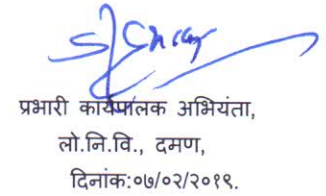 प्रभारी कार्यपालक अभियंता,
लो.नि.वि., दमण,
दिनांक:०७/०२/२०१९.